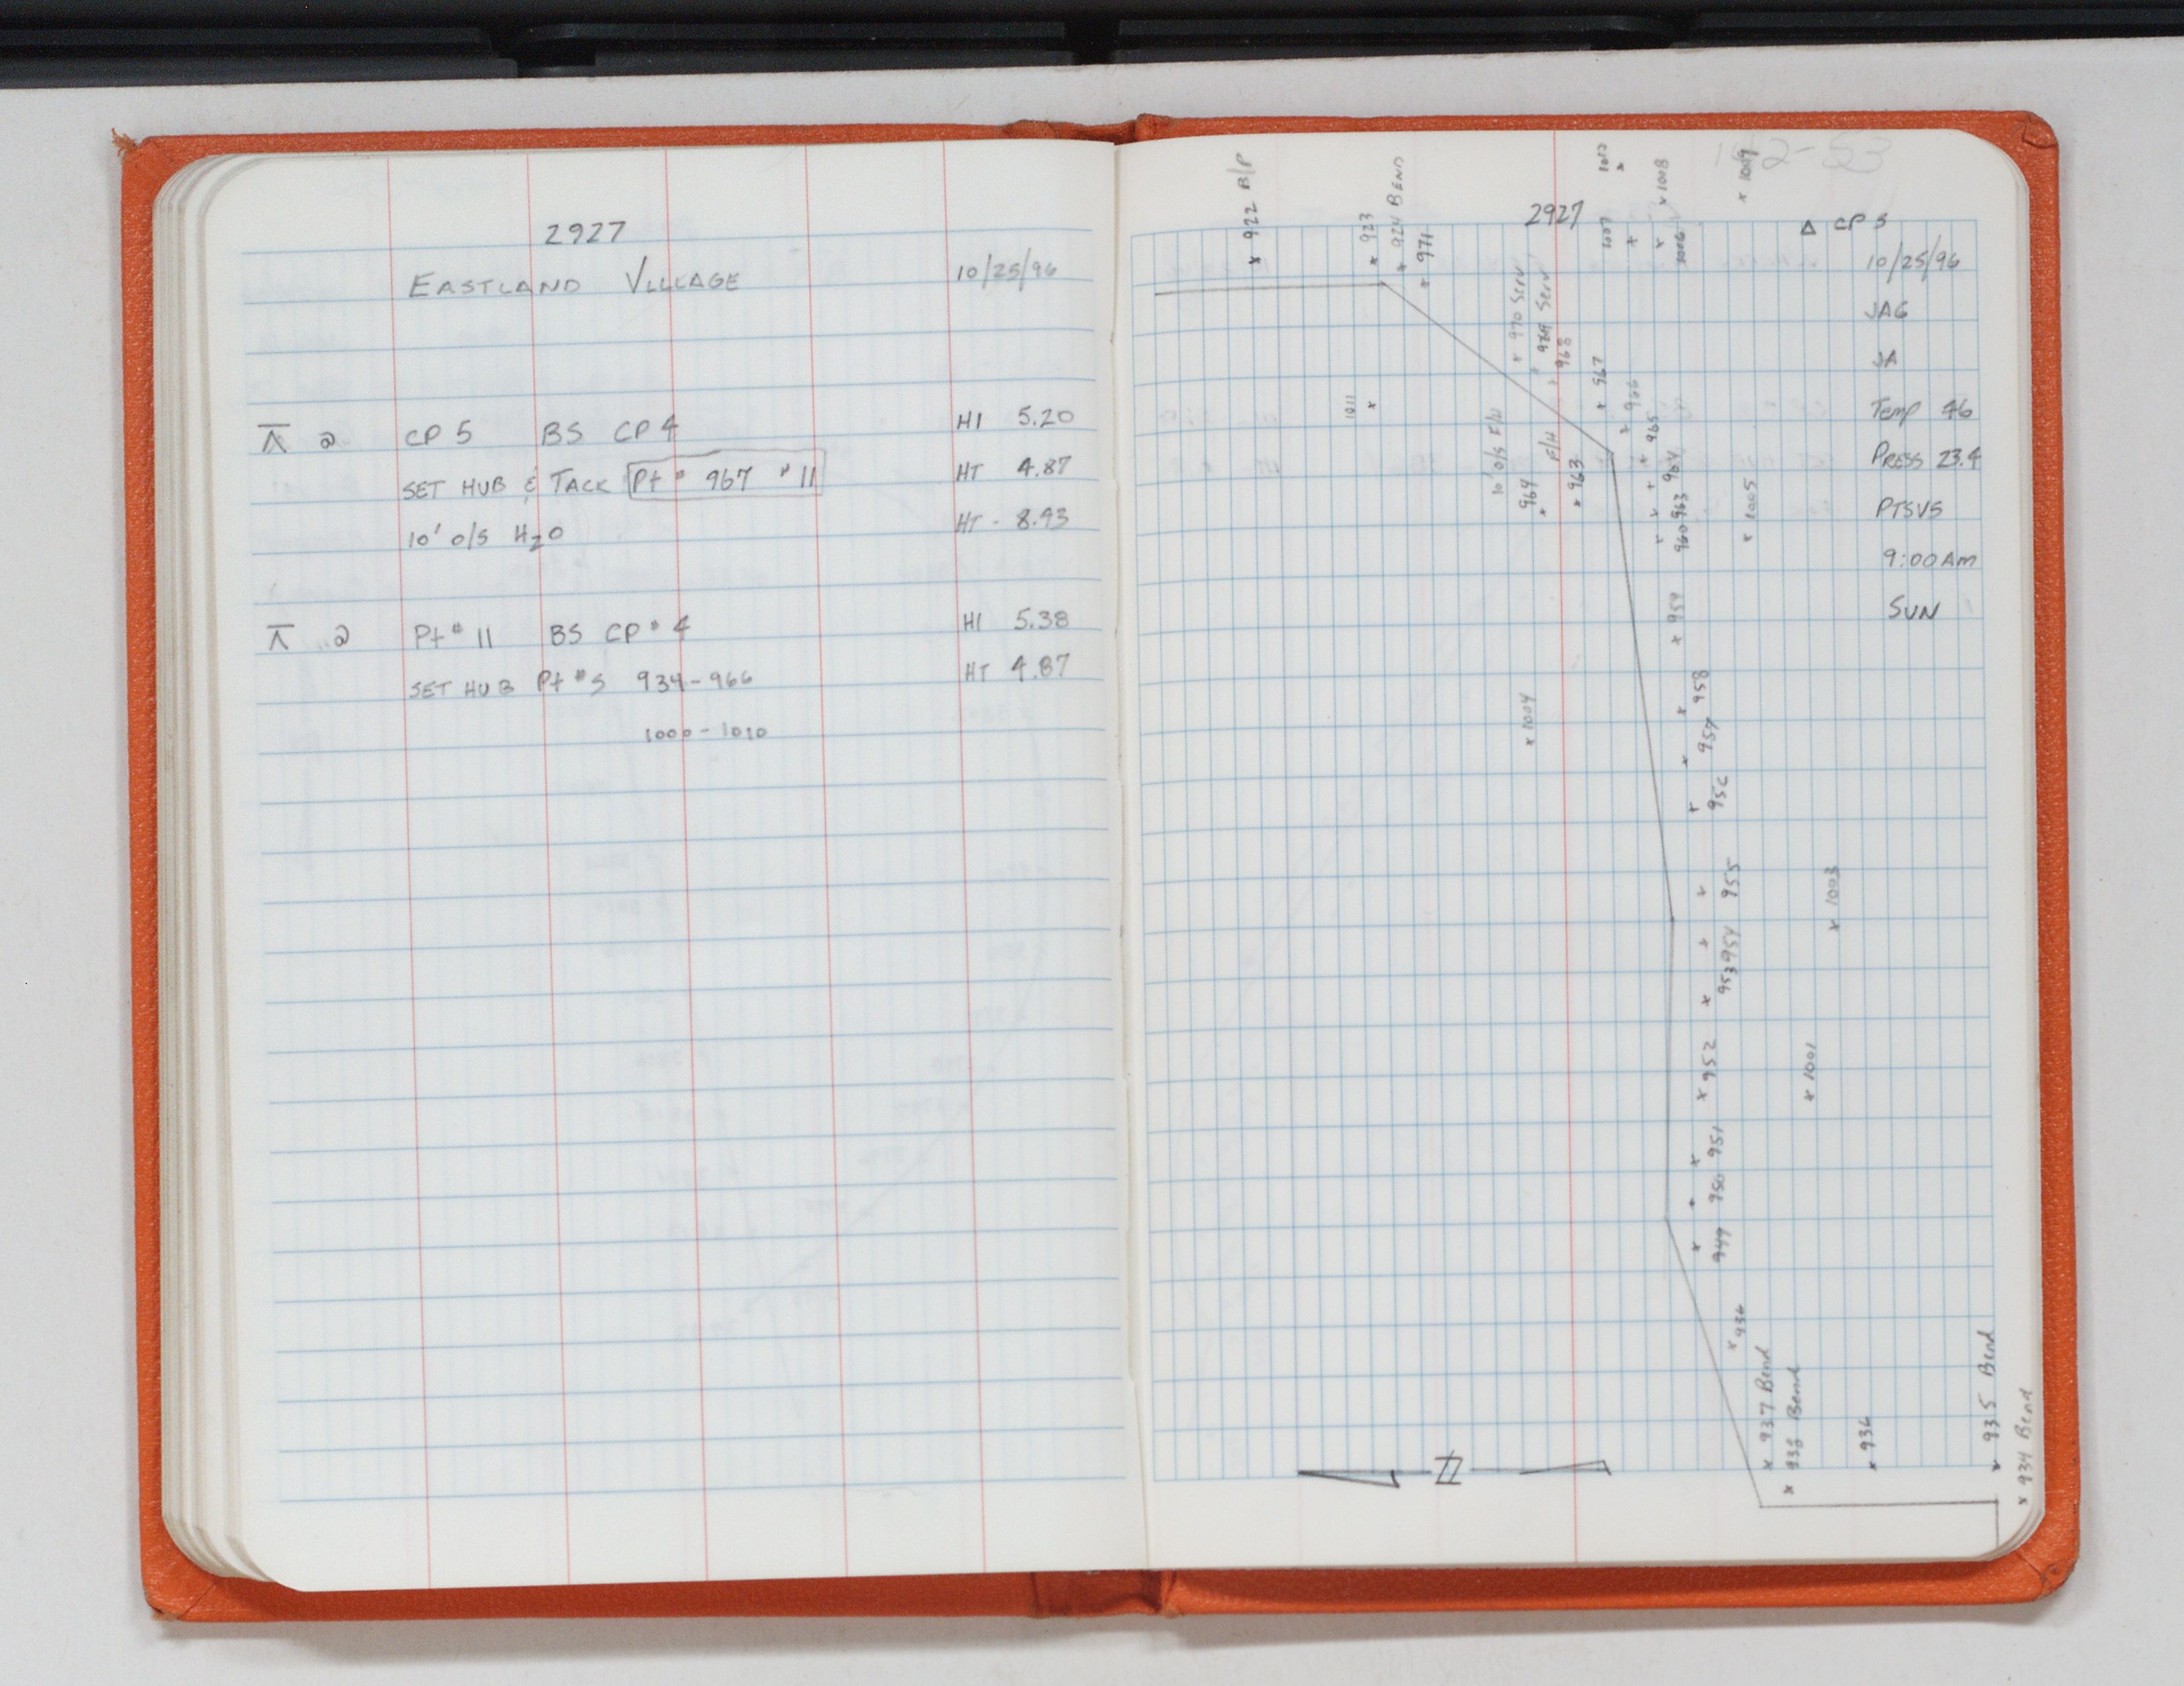 2927
EASTLAND VILLAGE 10/25/96
⊼ @ CP 5 BS CP 4 HI 5.20
SET HUB & TACK Pt # 967 # 11 HT 4.87
10' O/S H2O HT - 8.93
⊼ @ Pt # 11 BS CP # 4 HI 5.38
SET HUB Pt #S 934-966 HT 4.87
1000-1010
2927
Δ CP 5
10/25/96
JAG
JA
Temp 46
PRESS 23.4
PTSV5
9:00 Am
SUN
x 922 B/P
x 923
x 924 BEND
x 971
x 970 Serv
Serv
968
x 967
x 966
965
964
963
960
x 959
x 958
957
956
955
954
953
x 952
951
950
949
x 936
x 937 Bend
x 938 Bend
x 936
x 935 Bend
x 934 Bend
10' O/S F/H
964
F/H
x 963
1011 x
x 1004
x 1005
x 1003
x 1001
1007
1006
x 1008
x 1009
1010
N